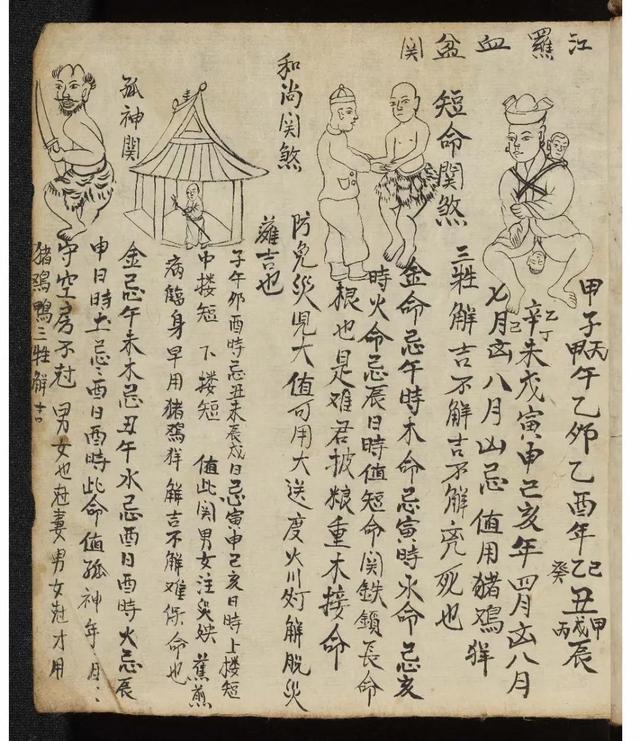 江羅血盆関
甲子丙甲午乙卯乙酉年乙己癸丑戊甲丙辰
辛乙丁未戊寅申己己亥年四月凶八月
七月凶八月凶忌值用猪鳮羊
三牲解吉不解吉不解死也
短命関煞
金命忌午時木命忌寅時水命忌亥
時火命忌辰日時值短命関鉄鎖長命
根也是难君披粮重木接命
和尚関煞
防免災児大值可用大送度火川灯解脱災
难吉也
子午卯酉時忌丑未辰戌日忌寅申己亥日時上楼短
中楼短 下楼短 值此関男女注災殃 蕉煎
病臨身早用猪鳮羊解吉不解难保命也
孤神関
金忌午未木忌丑午水忌酉日酉時火忌辰
申日時土忌酉日酉時此命值孤神年月
守空房不尅男女也尅妻男女尅才用
猪鳮鴨三牲解吉